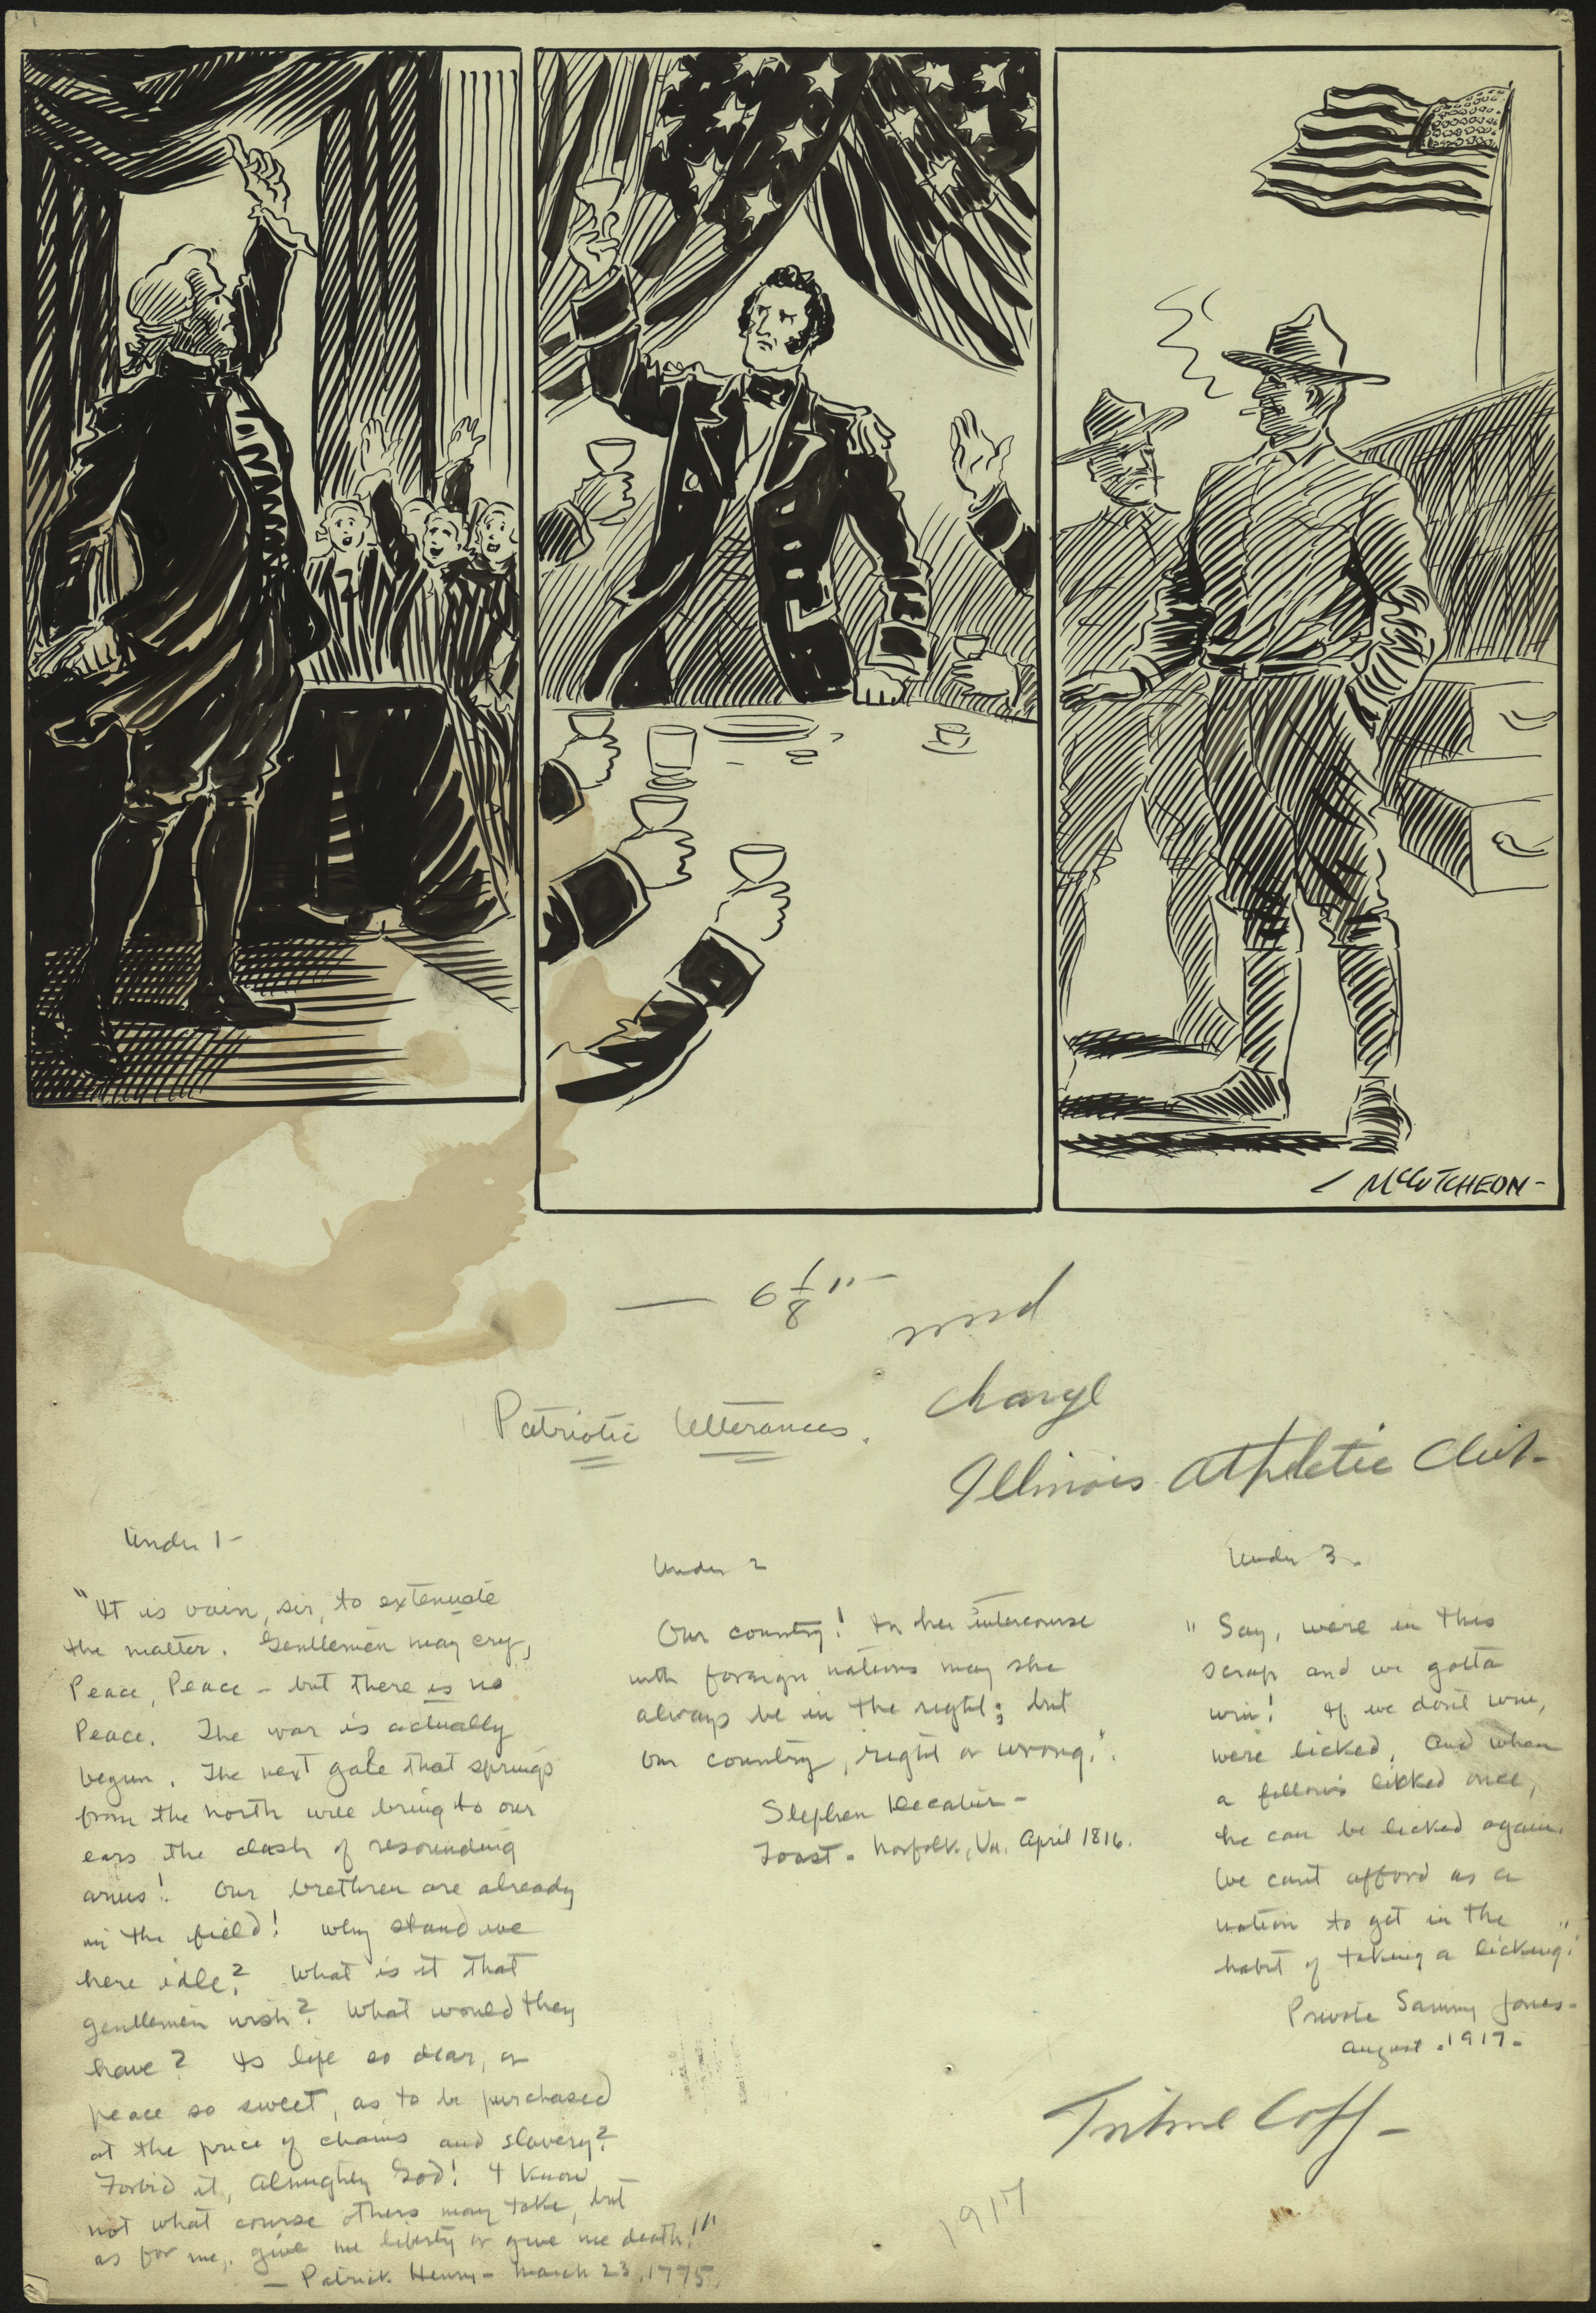 McCUTCHEON-
— 6 1/8" —
med
Charge
Patriotic Utterances.
Illinois Athletic Club-
Under 1-
"It is vain, sir, to extenuate
the matter. Gentlemen may cry,
Peace, Peace - but there is no
Peace. The war is actually
begun. The next gale that springs
from the north will bring to our
ears the clash of resounding
arms! Our brethren are already
in the field! Why stand we
here idle? What is it that
gentlemen wish? What would they
have? Is life so dear, or
peace so sweet, as to be purchased
at the price of chains and slavery?
Forbid it, Almighty God! I know
not what course others may take, but
as for me, give me liberty or give me death!"
— Patrick Henry - March 23, 1775.
Under 2
Our country! In her intercourse
with foreign nations may she
always be in the right; but
our country, right or wrong.".
Stephen Decatur -
Toast - Norfolk, Va. April 1816.
Under 3-
"Say, we're in this
scrap and we gotta
win! If we don't win,
we're licked. And when
a fellow's likked once,
he can be licked again.
We can't afford as a
nation to get in the
habit of taking a licking."
Private Sammy Jones-
August. 1917-
1917